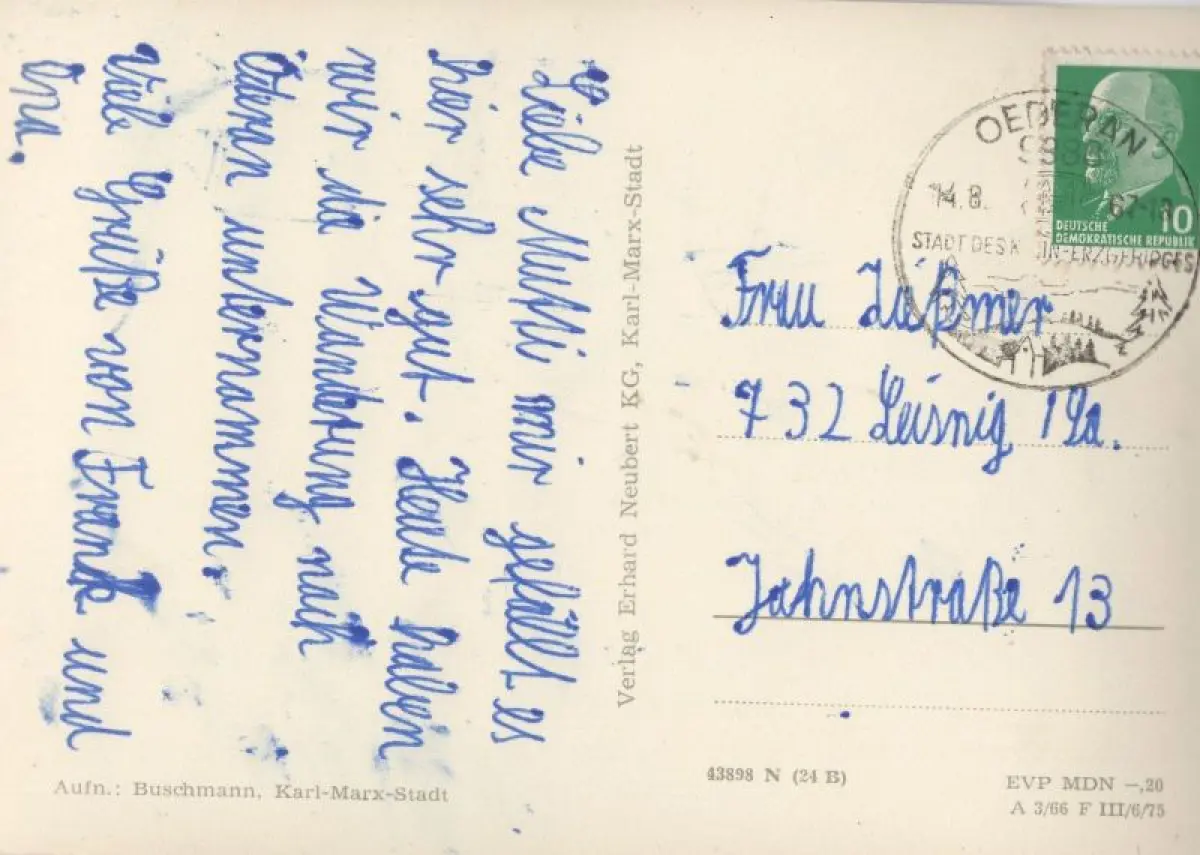 Liebe Mutti mir gefällt es
hier sehr gut. Heute haben
wir die Wanderung nach
Öderan unternammen.
Viele Grüße von Frank und
Ina.
Verlag Erhard Neubert KG, Karl-Marx-Stadt
Aufn.: Buschmann, Karl-Marx-Stadt
OEDERAN
14.8. 67-18
STADT DES K IN-ERZGEBIRGES
10
DEUTSCHE
DEMOKRATISCHE REPUBLIK
Frau
732 Leisnig
Jahnstraße 13
43898 N (24 B)
EVP MDN –,20
A 3/66 F III/6/75